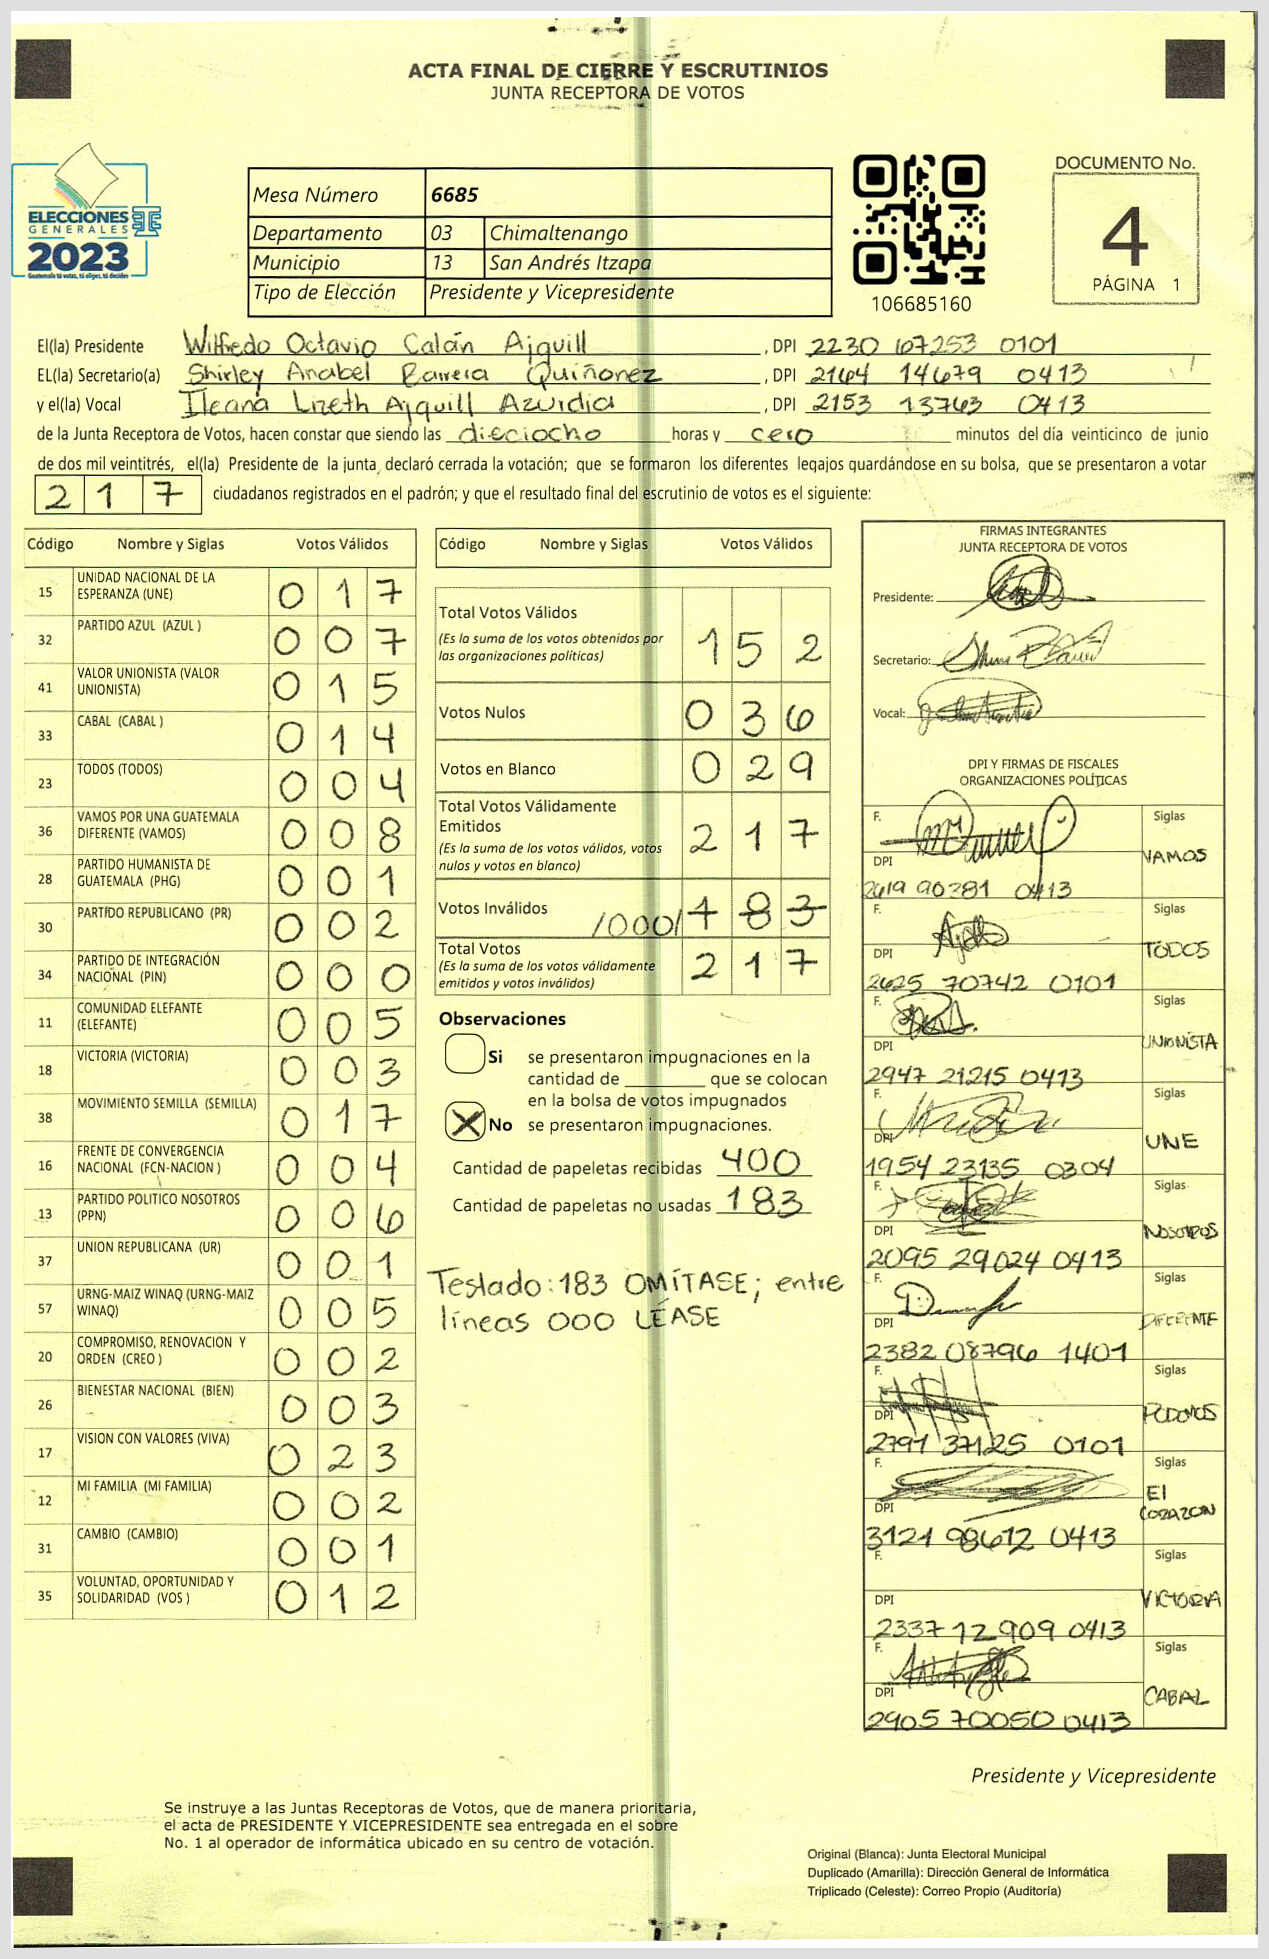 ACTA FINAL DE CIERRE Y ESCRUTINIOS
JUNTA RECEPTORA DE VOTOS
ELECCIONES
GENERALES
2023
Guatemala tú votas, tú eliges, tú decides
Mesa Número 6685
Departamento 03 Chimaltenango
Municipio 13 San Andrés Itzapa
Tipo de Elección Presidente y Vicepresidente
106685160
DOCUMENTO No.
4
PÁGINA 1
El(la) Presidente Wilfredo Octavio Calán Ajquill, DPI 2230 67253 0101
EL(la) Secretario(a) Shirley Anabel Barrera Quiñonez, DPI 2164 14679 0413
y el(la) Vocal Ileana Lizeth Ajquill Azurdia, DPI 2153 13763 0413
de la Junta Receptora de Votos, hacen constar que siendo las dieciocho horas y cero minutos del día veinticinco de junio
de dos mil veintitrés, el(la) Presidente de la junta, declaró cerrada la votación; que se formaron los diferentes legajos guardándose en su bolsa, que se presentaron a votar
217 ciudadanos registrados en el padrón; y que el resultado final del escrutinio de votos es el siguiente:
Código Nombre y Siglas Votos Válidos
15 UNIDAD NACIONAL DE LA ESPERANZA (UNE) 017
32 PARTIDO AZUL (AZUL ) 007
41 VALOR UNIONISTA (VALOR UNIONISTA) 015
33 CABAL (CABAL ) 014
23 TODOS (TODOS) 004
36 VAMOS POR UNA GUATEMALA DIFERENTE (VAMOS) 008
28 PARTIDO HUMANISTA DE GUATEMALA (PHG) 001
30 PARTIDO REPUBLICANO (PR) 002
34 PARTIDO DE INTEGRACIÓN NACIONAL (PIN) 000
11 COMUNIDAD ELEFANTE (ELEFANTE) 005
18 VICTORIA (VICTORIA) 003
38 MOVIMIENTO SEMILLA (SEMILLA) 017
16 FRENTE DE CONVERGENCIA NACIONAL (FCN-NACION ) 004
13 PARTIDO POLITICO NOSOTROS (PPN) 006
37 UNION REPUBLICANA (UR) 001
57 URNG-MAIZ WINAQ (URNG-MAIZ WINAQ) 005
20 COMPROMISO, RENOVACION Y ORDEN (CREO ) 002
26 BIENESTAR NACIONAL (BIEN) 003
17 VISION CON VALORES (VIVA) 023
12 MI FAMILIA (MI FAMILIA) 002
31 CAMBIO (CAMBIO) 001
35 VOLUNTAD, OPORTUNIDAD Y SOLIDARIDAD (VOS ) 012
Código Nombre y Siglas Votos Válidos
Total Votos Válidos 152
(Es la suma de los votos obtenidos por
las organizaciones políticas)
Votos Nulos 036
Votos en Blanco 029
Total Votos Válidamente
Emitidos 217
(Es la suma de los votos válidos, votos
nulos y votos en blanco)
Votos Inválidos /000/ 183
Total Votos 217
(Es la suma de los votos válidamente
emitidos y votos inválidos)
Observaciones
Si se presentaron impugnaciones en la
cantidad de ________ que se colocan
en la bolsa de votos impugnados
X No se presentaron impugnaciones.
Cantidad de papeletas recibidas 400
Cantidad de papeletas no usadas 183
Testado: 183 OMÍTASE; entre
líneas 000 LÉASE
FIRMAS INTEGRANTES
JUNTA RECEPTORA DE VOTOS
Presidente:
Secretario:
Vocal:
DPI Y FIRMAS DE FISCALES
ORGANIZACIONES POLÍTICAS
F. Siglas
DPI VAMOS
2619 90281 0413
F. Siglas
DPI TODOS
2625 70742 0101
F. Siglas
DPI UNIONISTA
2947 21215 0413
F. Siglas
DPI UNE
1954 23135 0304
F. Siglas
DPI NOSOTROS
2095 29024 0413
F. Siglas
DPI
2382 08796 1401
F. Siglas
DPI PODEMOS
2791 37125 0101
F. Siglas
DPI El CORAZON
3121 98612 0413
F. Siglas
DPI VICTORIA
2337 12909 0413
F. Siglas
DPI CABAL
2905 70050 0413
Presidente y Vicepresidente
Se instruye a las Juntas Receptoras de Votos, que de manera prioritaria,
el acta de PRESIDENTE Y VICEPRESIDENTE sea entregada en el sobre
No. 1 al operador de informática ubicado en su centro de votación.
Original (Blanca): Junta Electoral Municipal
Duplicado (Amarilla): Dirección General de Informática
Triplicado (Celeste): Correo Propio (Auditoría)